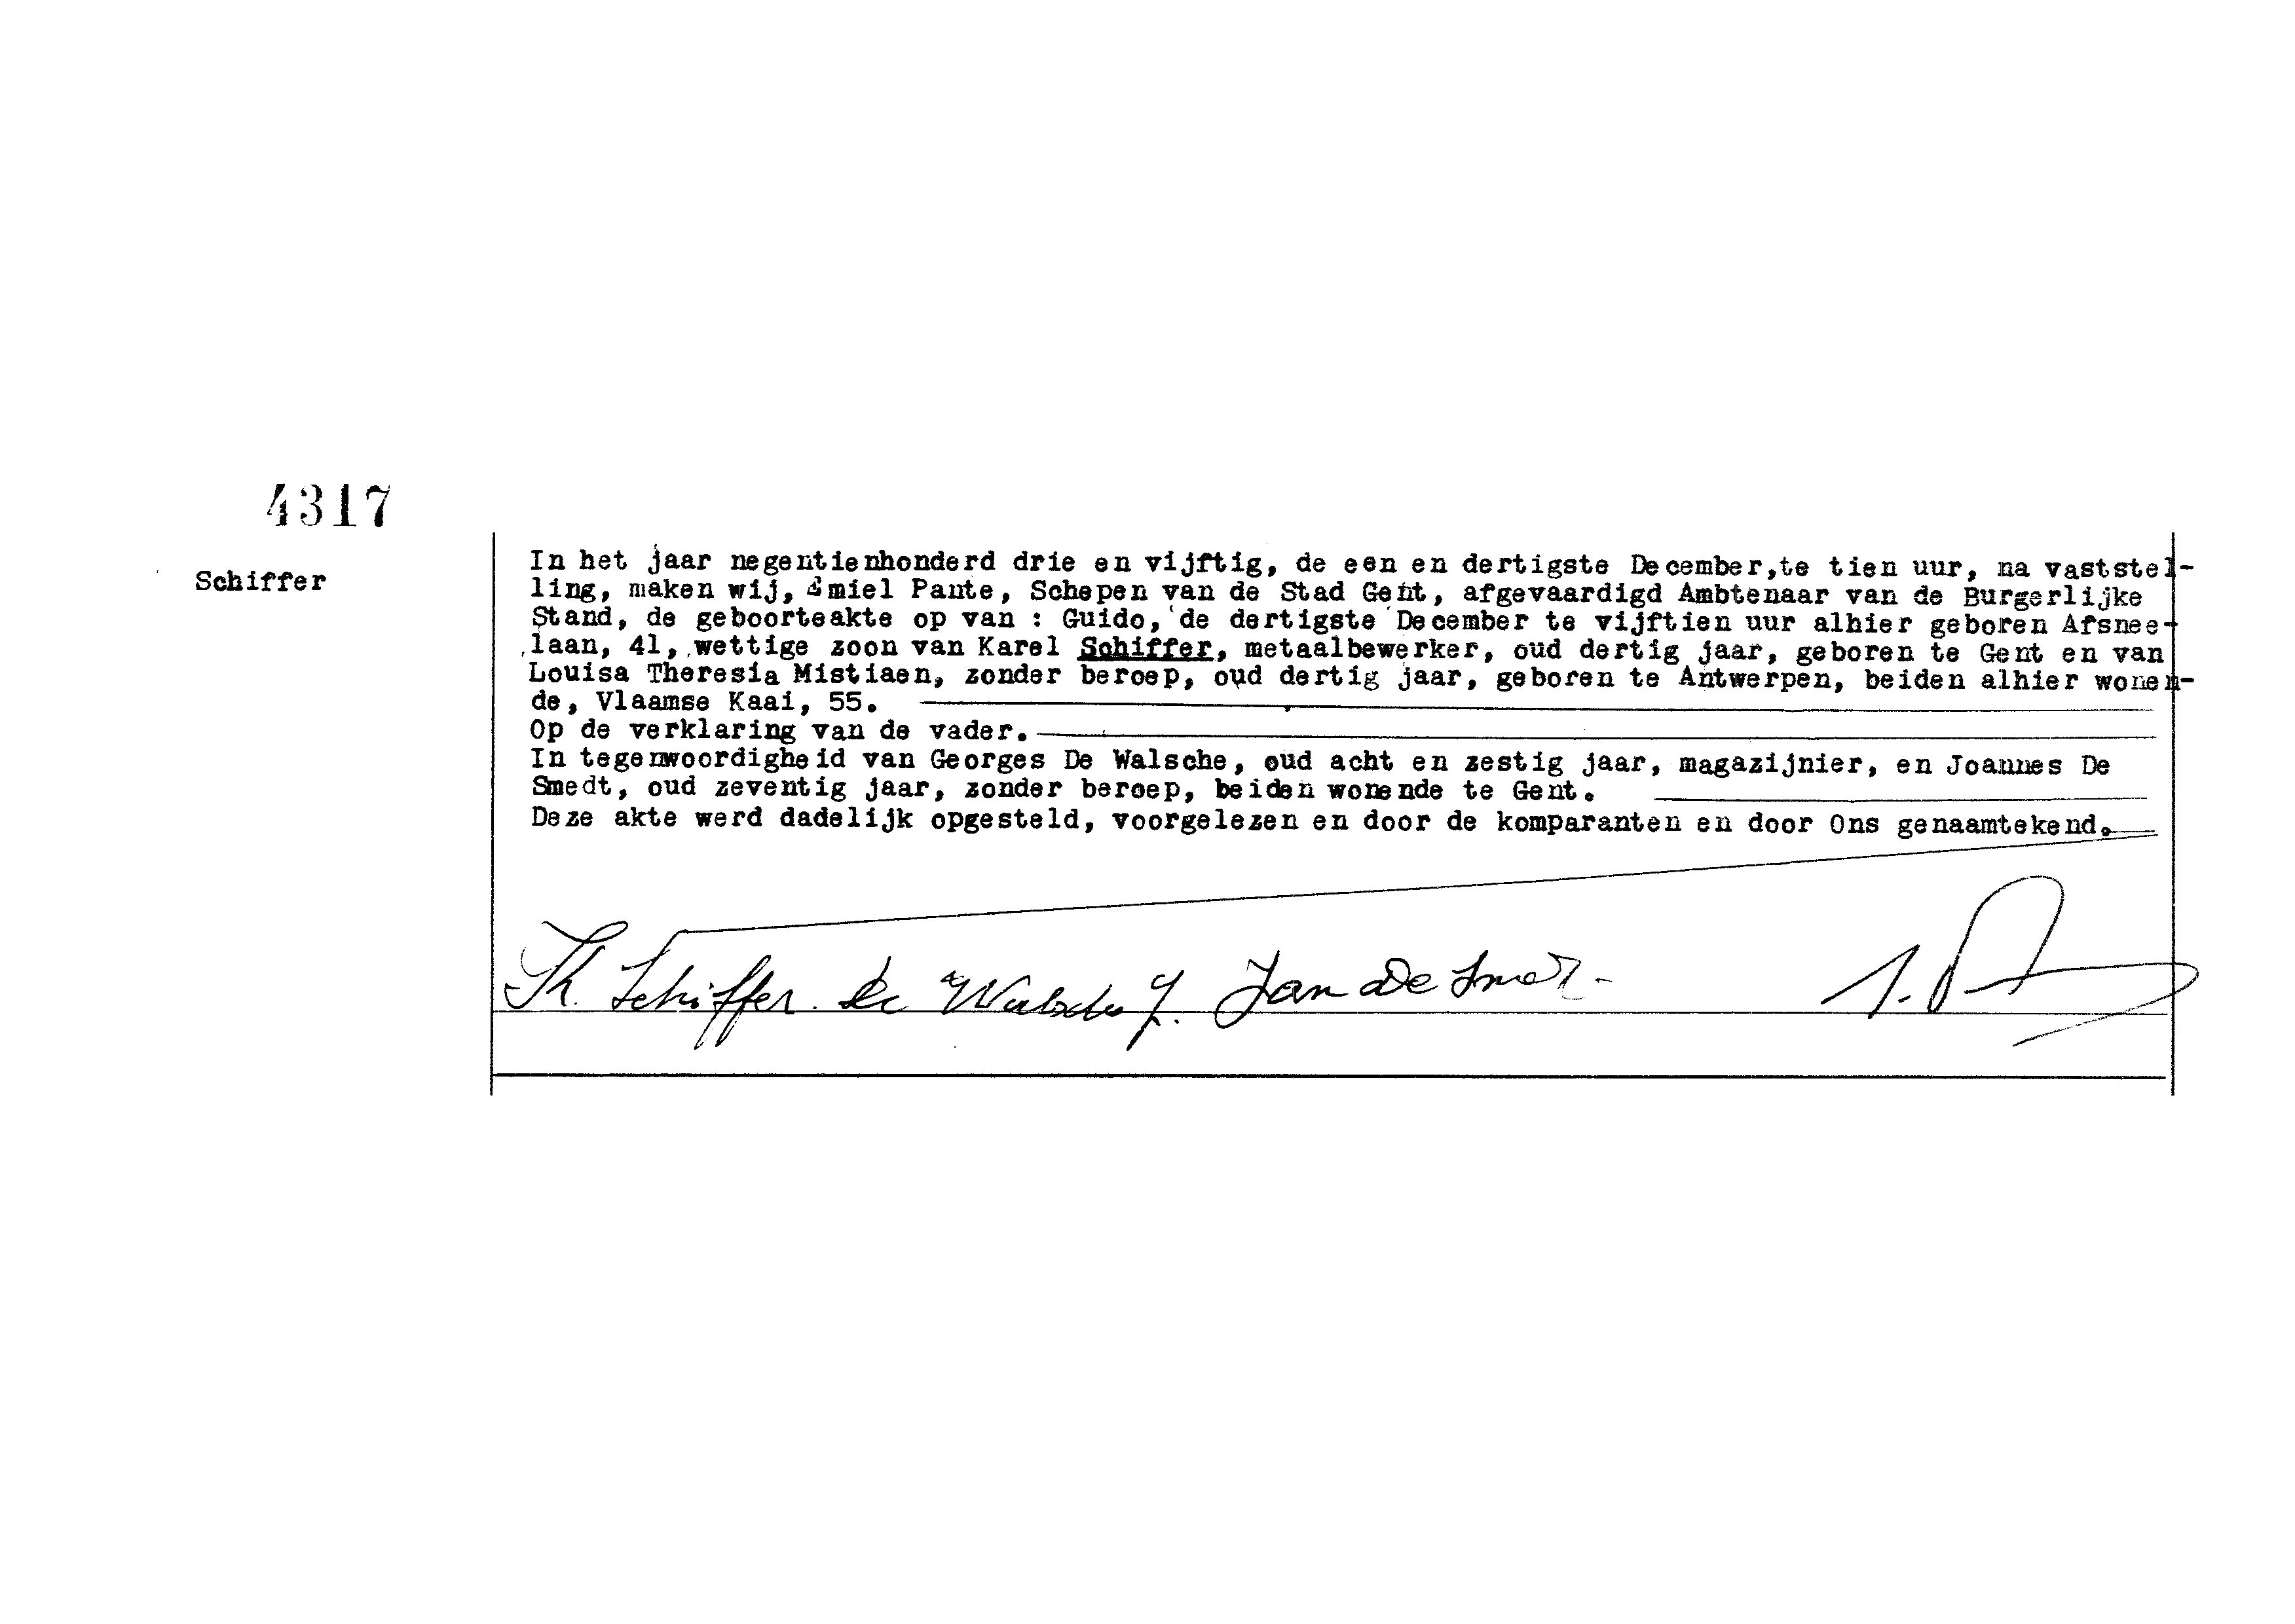 4317
Schiffer
In het jaar negentienhonderd drie en vijftig, de een en dertigste December,te tien uur, na vaststel-
ling, maken wij, Emiel Pante, Schepen van de Stad Gent, afgevaardigd Ambtenaar van de Burgerlijke
Stand, de geboorteakte op van : Guido, de dertigste December te vijftien uur alhier geboren Afsnee-
laan, 41, wettige zoon van Karel Schiffer, metaalbewerker, oud dertig jaar, geboren te Gent en van
Louisa Theresia Mistiaen, zonder beroep, oud dertig jaar, geboren te Antwerpen, beiden alhier wonen-
de, Vlaamse Kaai, 55.
Op de verklaring van de vader.
In tegenwoordigheid van Georges De Walsche, oud acht en zestig jaar, magazijnier, en Joannes De
Smedt, oud zeventig jaar, zonder beroep, beiden wonende te Gent.
Deze akte werd dadelijk opgesteld, voorgelezen en door de komparanten en door Ons genaamtekend.
Schiffer. De Walsche Jan De